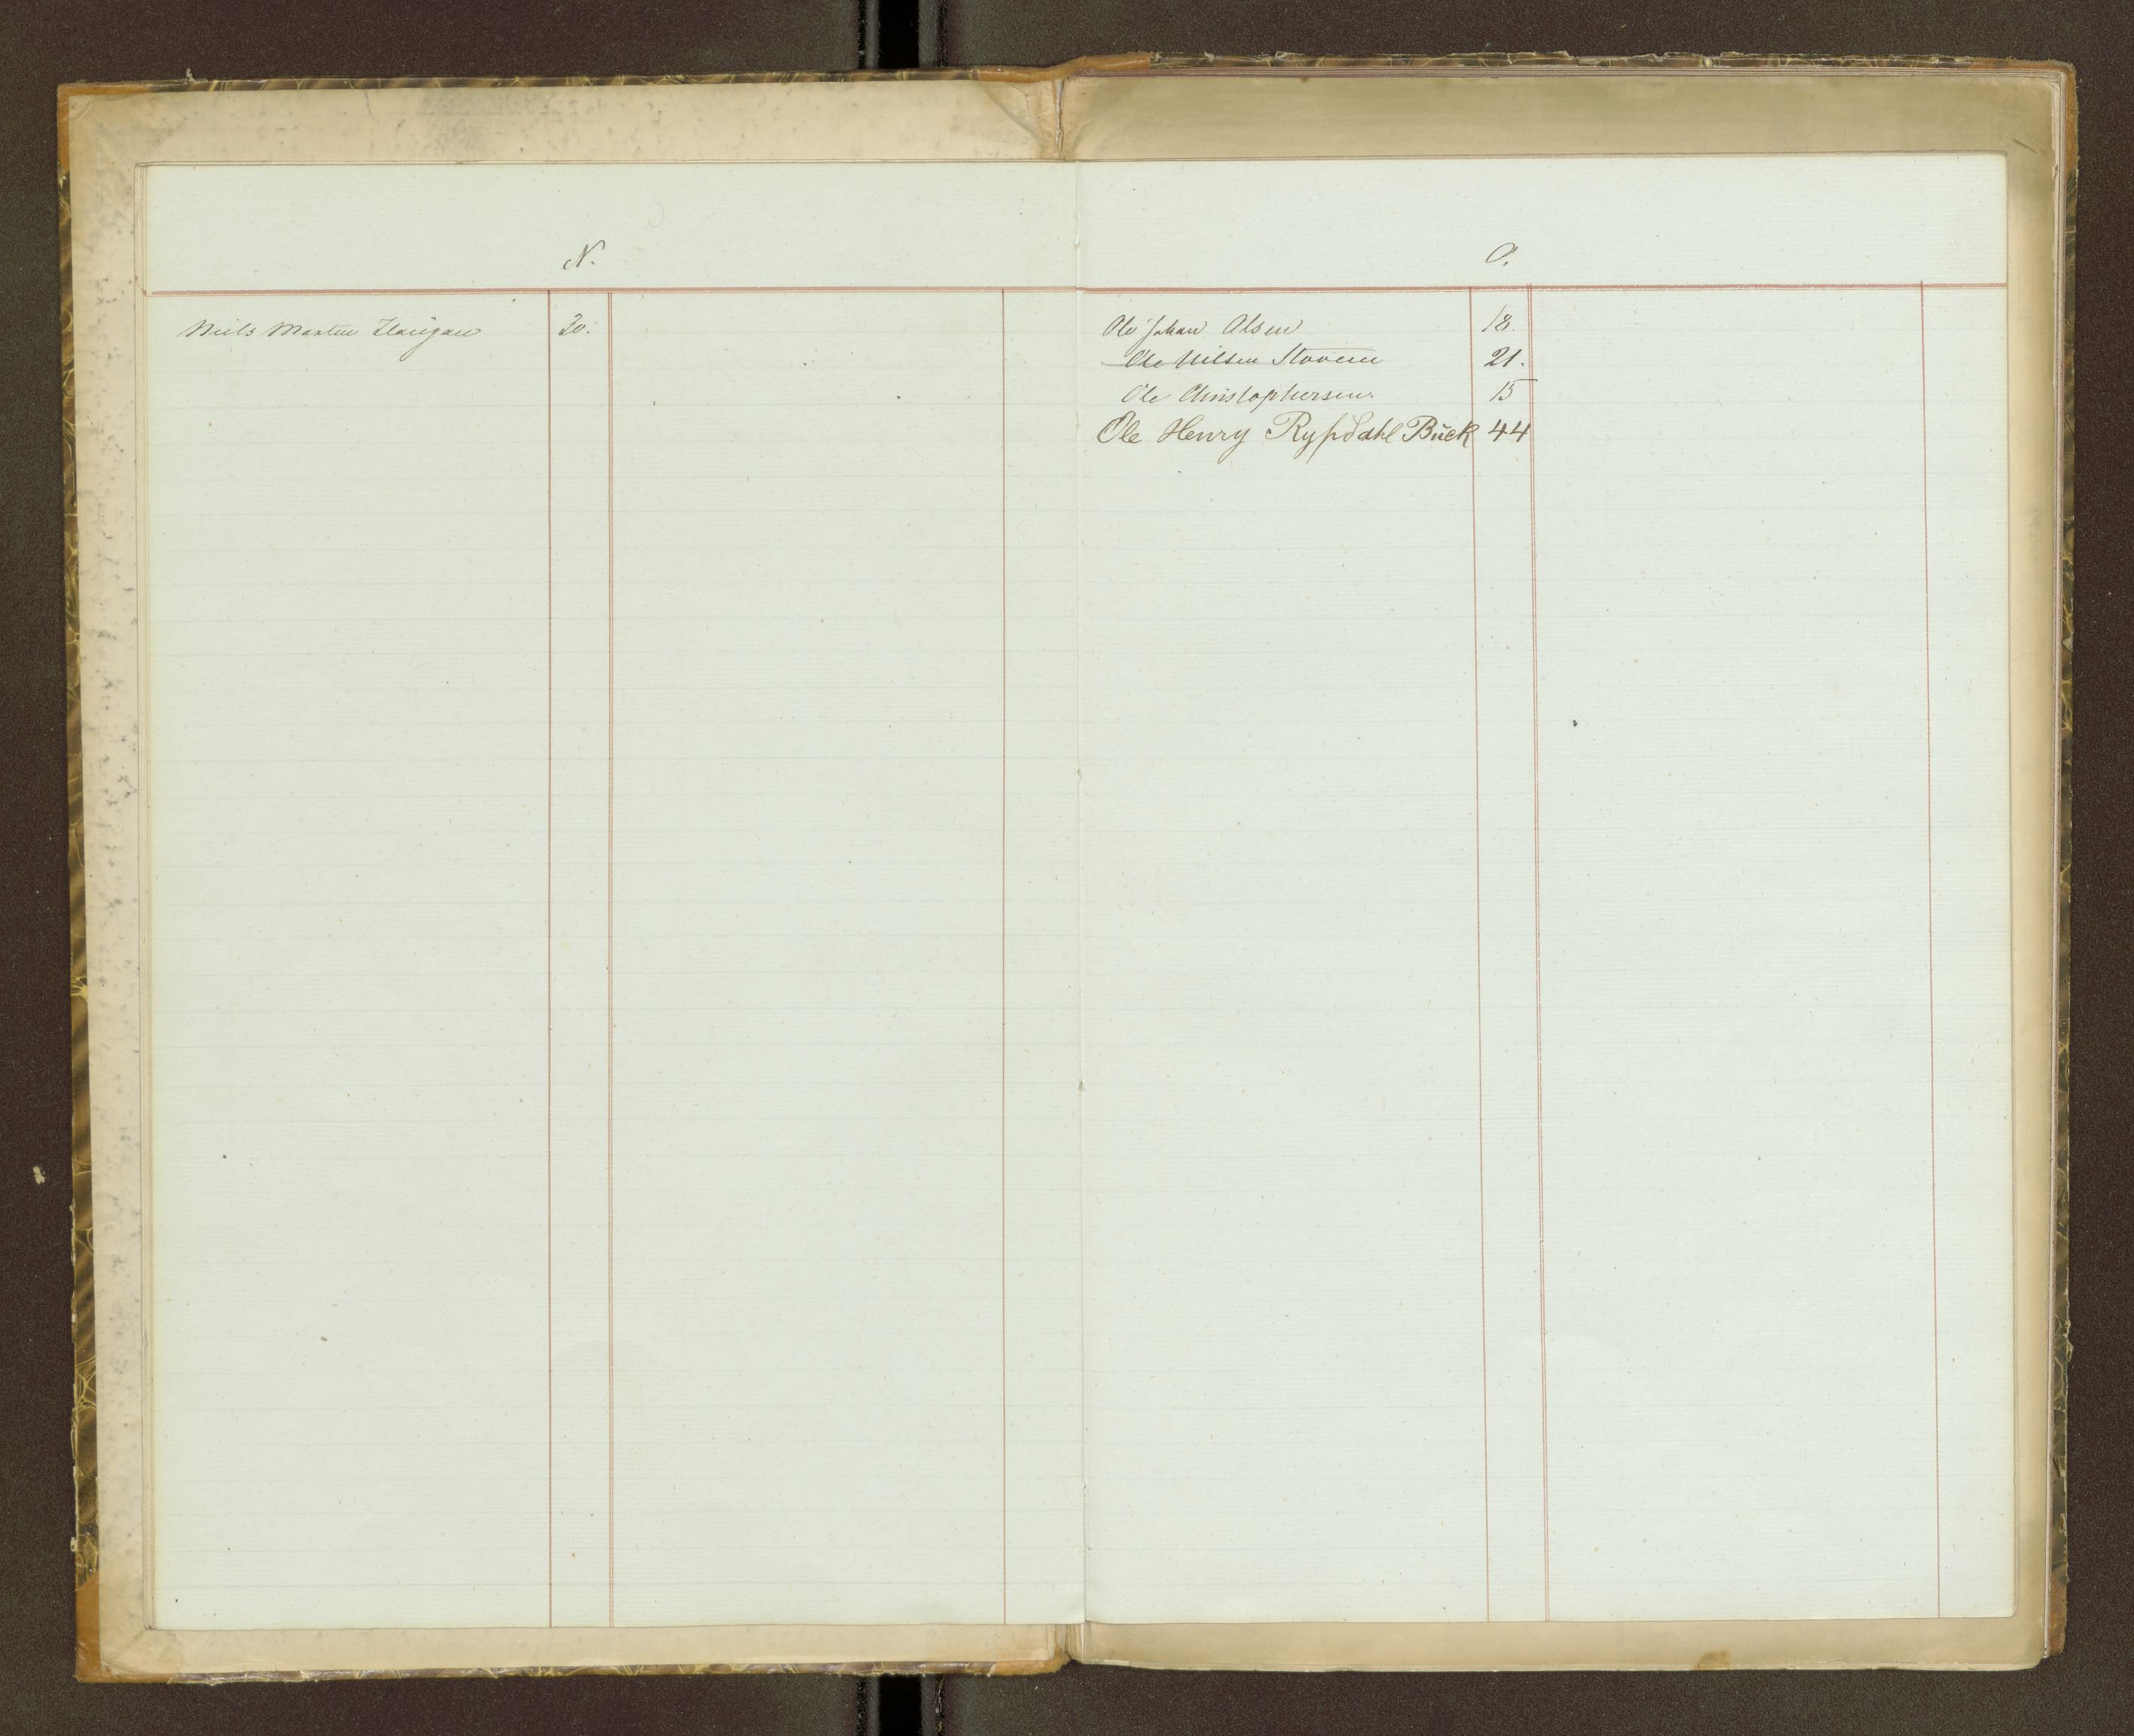 N.
Niels Martin 20.
O.
Ole Johan Olsen 18.
Ole Nilsen Stoveen 21.
Ole Christophersen. 15
Ole Henry Rypdahl Buck 44